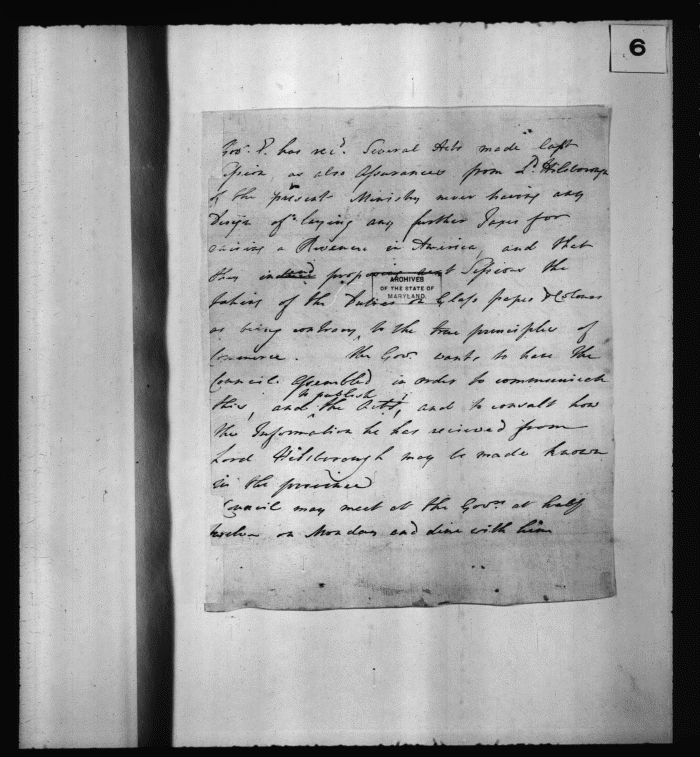 6
Gov.r E. has rec.d Several Acts made last
Session, as also Assurances from L.d Hilsborough
of the present Ministry never having any
Design of laying any further Taxes for
raising a Revenue in America, and that
they intend proposing next Session the
ARCHIVES
OF THE STATE OF
MARYLAND
taking of the Duties on Glass paper & Colours
as being contrary to the true principles of
Commerce. The Gov.r wants to have the
Council Assembled in order to communicate
to publish
this, and the Acts, and to consult how
the Information he has recieved from
Lord Hilsborough may be made known
in the province
Council may meet at the Gov.rs at half
twelve on Monday and dine with him